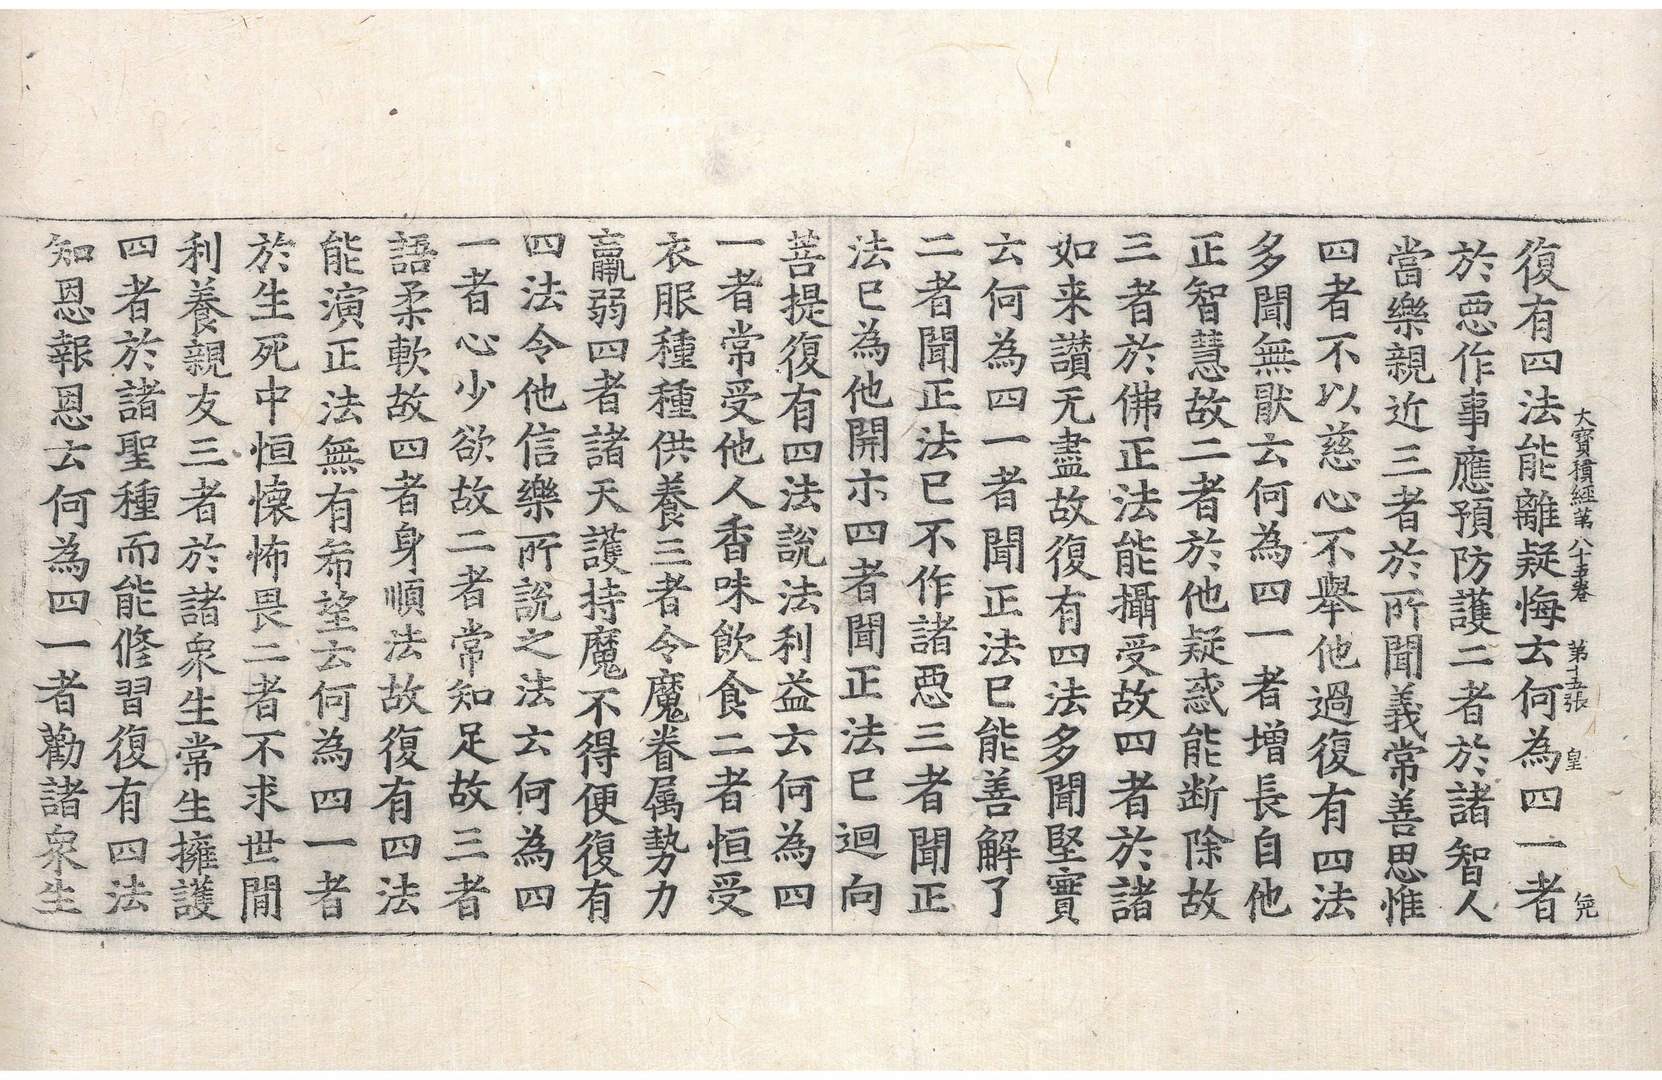 大寶積經第八十五卷 第十五張 皇
復有四法能離疑悔云何為四一者
於惡作事應預防護二者於諸智人
當樂親近三者於所聞義常善思惟
四者不以慈心不舉他過復有四法
多聞無猒云何為四一者增長自他
正智慧故二者於他疑惑能断除故
三者於佛正法能攝受故四者於諸
如来讃无盡故復有四法多聞堅實
云何為四一者聞正法已能善解了
二者聞正法已不作諸惡三者聞正
法已為他開示四者聞正法已迴向
菩提復有四法說法利益云何為四
一者常受他人香味飲食二者恒受
衣服種種供養三者令魔眷属勢力
羸弱四者諸天護持魔不得便復有
四法令他信樂所說之法云何為四
一者心少欲故二者常知足故三者
語柔軟故四者身順法故復有四法
能演正法無有希望云何為四一者
於生死中恒懷怖畏二者不求世間
利養親友三者於諸衆生常生擁護
四者於諸聖種而能修習復有四法
知恩報恩云何為四一者勸諸衆生